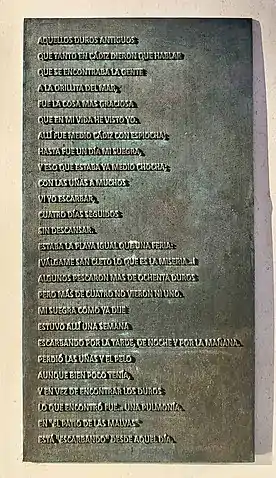 AQUELLOS DUROS ANTIGUOS
QUE TANTO EN CÁDIZ DIERON QUE HABLAR
QUE SE ENCONTRABA LA GENTE
A LA ORILLITA DEL MAR,
FUE LA COSA MAS GRACIOSA
QUE EN MI VIDA HE VISTO YO.
ALLÍ FUE MEDIO CÁDIZ CON ESPIOCHA;
HASTA FUE UN DÍA MI SUEGRA,
Y ESO QUE ESTABA YA MEDIO CHOCHA;
CON LAS UÑAS A MUCHOS
VI YO ESCARBAR,
CUATRO DÍAS SEGUIDOS
SIN DESCANSAR.
ESTABA LA PLAYA IGUAL QUE UNA FERIA:
¡VÁLGAME SAN CLETO LO QUE ES LA MISERIA..!
ALGUNOS PESCARON MAS DE OCHENTA DUROS
PERO MÁS DE CUATRO NO VIERON NI UNO.
MI SUEGRA COMO YA DIJE
ESTUVO ALLÍ UNA SEMANA
ESCARBANDO POR LA TARDE, DE NOCHE Y POR LA MAÑANA.
PERDIÓ LAS UÑAS Y EL PELO
AUNQUE BIEN POCO TENÍA,
Y EN VEZ DE ENCONTRAR LOS DUROS
LO QUE ENCONTRÓ FUE... UNA PULMONÍA.
EN "EL PATIO DE LAS MALVAS"
ESTÁ "ESCARBANDO" DESDE AQUEL DÍA.